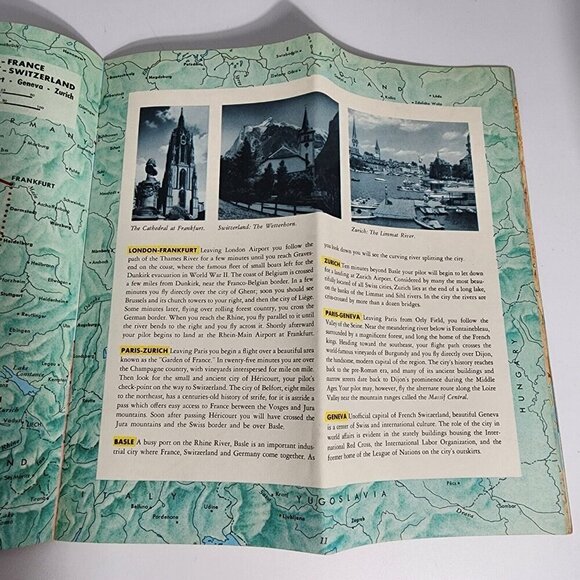 - FRANCE
- SWITZERLAND
Geneva - Zurich
FRANKFURT
The Cathedral at Frankfurt.
Switzerland: The Wetterhorn.
Zurich: The Limmat River.
LONDON-FRANKFURT Leaving London Airport you follow the
path of the Thames River for a few minutes until you reach Graves-
end on the coast, where the famous fleet of small boats left for the
Dunkirk evacuation in World War II. The coast of Belgium is crossed
a few miles from Dunkirk, near the Franco-Belgian border. In a few
minutes you fly directly over the city of Ghent; soon you should see
Brussels and its church towers to your right, and then the city of Liège.
Some minutes later, flying over rolling forest country, you cross the
German border. When you reach the Rhine, you fly parallel to it until
the river bends to the right and you fly across it. Shortly afterward
your pilot begins to land at the Rhein-Main Airport at Frankfurt.
PARIS-ZURICH Leaving Paris you begin a flight over a beautiful area
known as the "Garden of France." In twenty-five minutes you are over
the Champagne country, with vineyards interspersed for mile on mile.
Then look for the small and ancient city of Héricourt, your pilot's
check-point on the way to Switzerland. The city of Belfort, eight miles
to the northeast, has a centuries-old history of strife, for it is astride a
pass which offers easy access to France between the Vosges and Jura
mountains. Soon after passing Héricourt you will have crossed the
Jura mountains and the Swiss border and be over Basle.
BASLE A busy port on the Rhine River, Basle is an important indus-
trial city where France, Switzerland and Germany come together. As
you look down you will see the curving river splitting the city.
ZURICH Ten minutes beyond Basle your pilot will begin to let down
for a landing at Zurich Airport. Considered by many the most beau-
tifully located of all Swiss cities, Zurich lies at the end of a long lake,
on the banks of the Limmat and Sihl rivers. In the city the rivers are
criss-crossed by more than a dozen bridges.
PARIS-GENEVA Leaving Paris from Orly Field, you follow the
Valley of the Seine. Near the meandering river below is Fontainebleau,
surrounded by a magnificent forest, and long the home of the French
kings. Heading toward the southeast, your flight path crosses the
world-famous vineyards of Burgundy and you fly directly over Dijon,
the handsome, modern capital of the region. The city's history reaches
back to the pre-Roman era, and many of its ancient buildings and
narrow streets date back to Dijon's prominence during the Middle
Ages. Your pilot may, however, fly the alternate route along the Loire
Valley near the mountain ranges called the Massif Central.
GENEVA Unofficial capital of French Switzerland, beautiful Geneva
is a center of Swiss and international culture. The role of the city in
world affairs is evident in the stately buildings housing the Inter-
national Red Cross, the International Labor Organization, and the
former home of the League of Nations on the city's outskirts.
HUNGARY
ITALY
YUGOSLAVIA
Udine
Pordenone
Belluno
Ljubljana
Zagreb
Drava
11